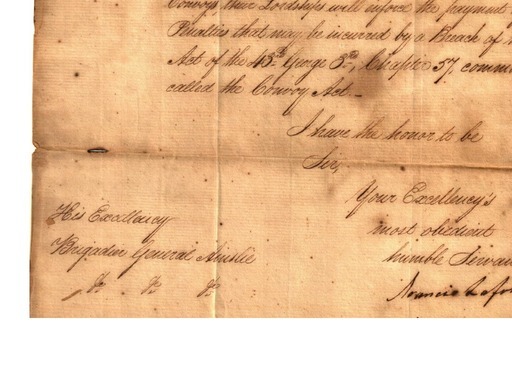 Convoys their Lordships will enforce the payment
Penalties that may be incurred by a Breach of
Act of the 43d George 3d, Chapter 57, comm
called the Convoy Act -
I have the honor to be
Sir,
Your Excellency's
most obedient
humble Servan
His Excellency
Brigadier General Ainslie
&c &c &c
Francis Lafor